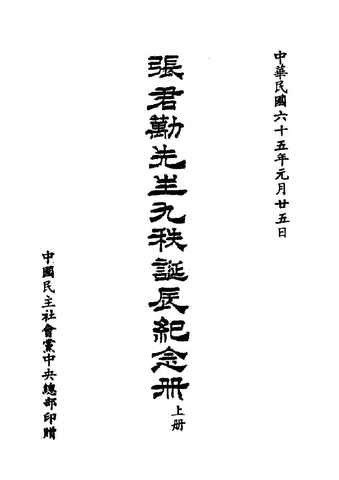 中華民國六十五年元月廿五日
張君勱先生九秩誕辰紀念册
上册
中國民主社會黨中央總部印贈